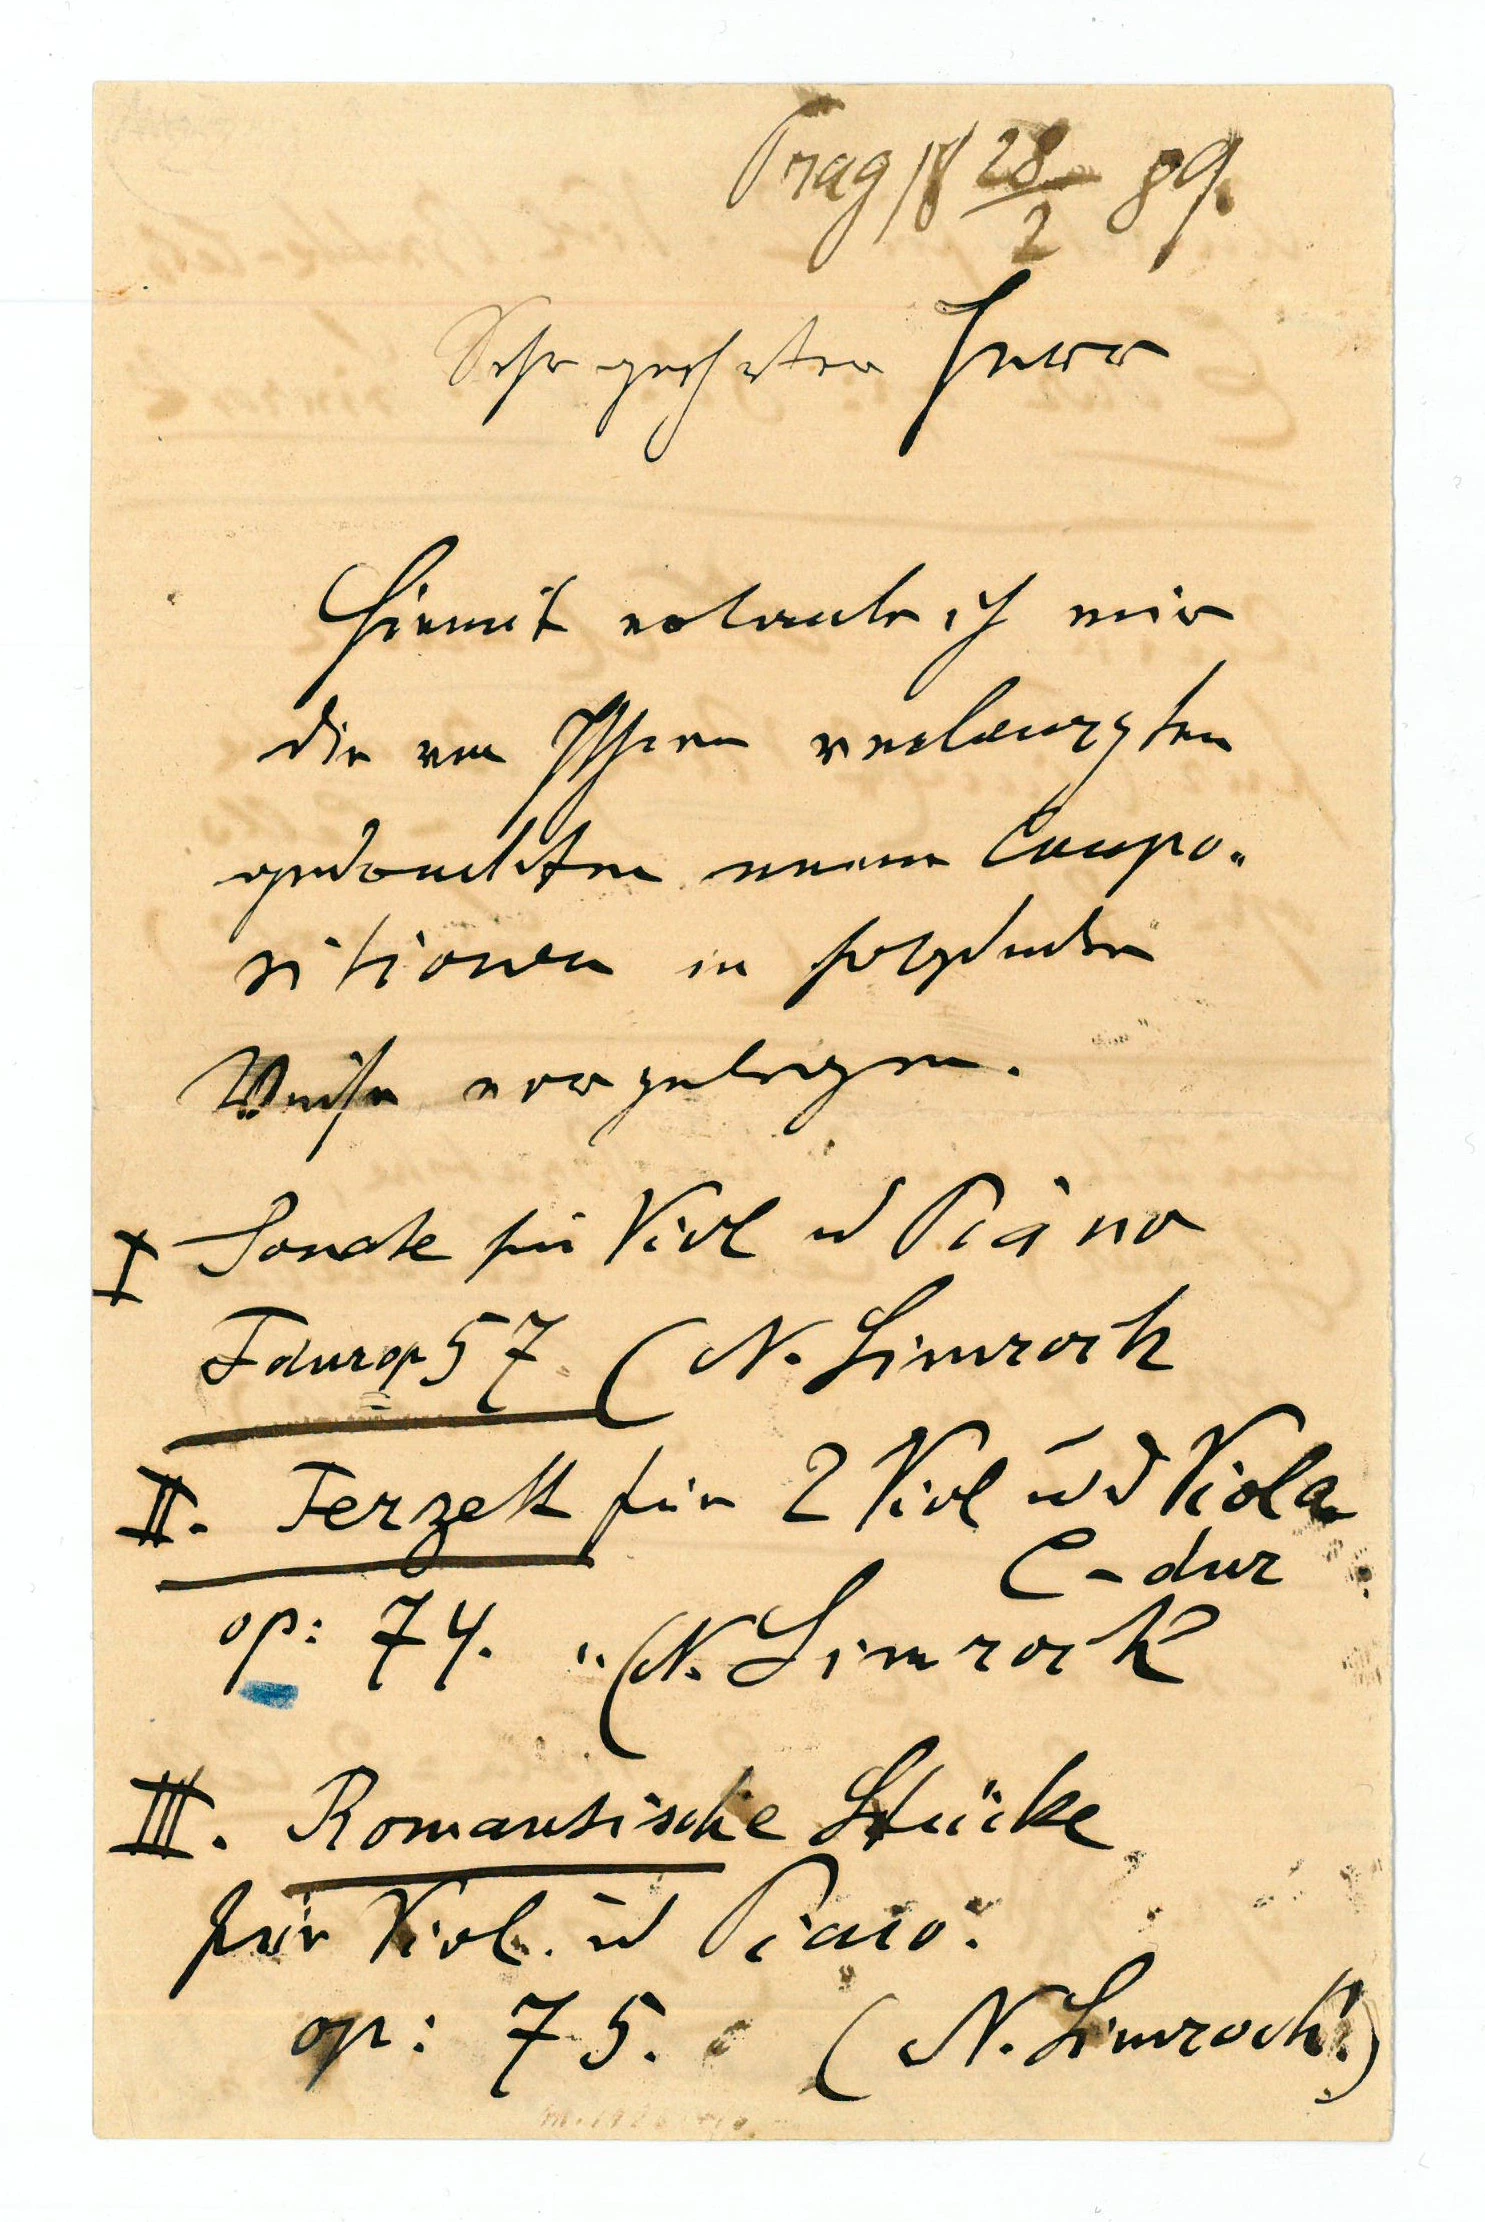 Prag 18 28/2 89.
Sehr geehrter Herr
Hiemit erlaube ich mir
die von Ihnen verlangten
gedruckten neuen Compo„
sitionen in folgender
Weise vorzulegen.
I Sonate für Viol ud Piano
F dur op 57 (N. Simrock
II. Terzett für 2 Viol ud Viola
C-dur
op: 74. „ (N. Simrock
III. Romantische Stücke
für Viol. ud Piano.
op: 75. (N. Simrock!)